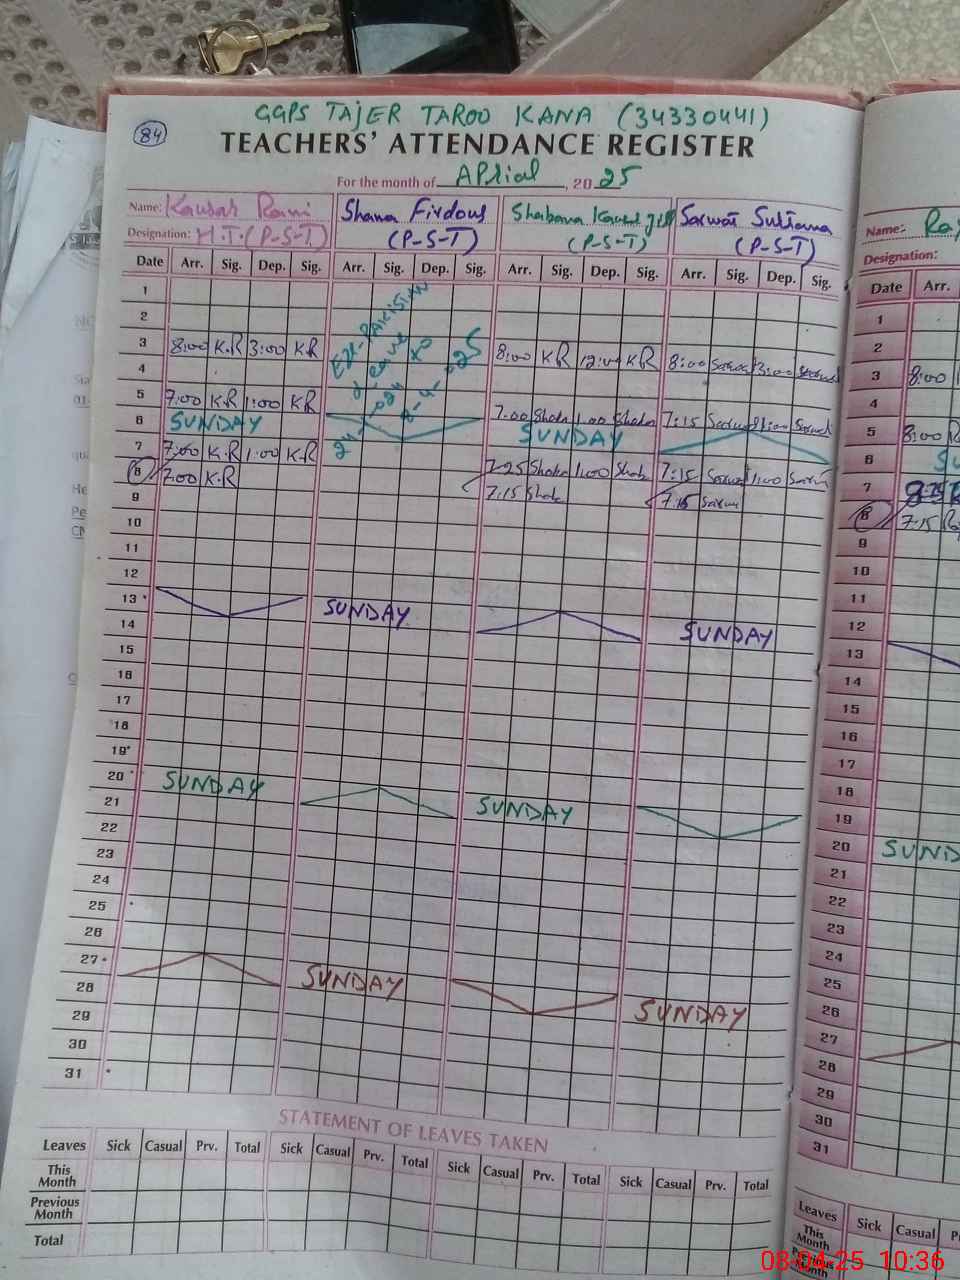 GGPS TAJER TAROO KANA (34330441)
84
TEACHERS' ATTENDANCE REGISTER
For the month of APrial, 2025
Name: Kausar Rani Shama Firdous Shabana Kausar Sarwat Sultana Name:
Designation: M.T.(P-S-T) (P-S-T) (P-S-T) (P-S-T) Designation:
Date Arr. Sig. Dep. Sig. Arr. Sig. Dep. Sig. Arr. Sig. Dep. Sig. Arr. Sig. Dep. Sig. Date Arr.
1 1
2 2
3 8:00 K.R 3:00 K.R 8:00 KR 12:00 KR 8:00 3:00 3 8:00
EX-PAKISTAN
Leave
to
8-4-025
4 4
5 7:00 K.R 1:00 K.R 7.00 Shaba 1.00 Shaba 7:15 1:00 5 8:00
6 SUNDAY SUNDAY 6
7 7:00 K.R 1:00 K.R 7.25 Shaba 1:00 Shab 7:15 1:00 7
8 7:00 K.R 7.15 Shab 7.15 8 7.15
9 9
10 10
11 11
12 12
13 SUNDAY SUNDAY 13
14 14
15 15
16 16
17 17
18 18
19 19
20 SUNDAY SUNDAY 20 SUND
21 21
22 22
23 23
24 24
25 25
26 26
27 SUNDAY SUNDAY 27
28 28
29 29
30 30
31 31
STATEMENT OF LEAVES TAKEN
Leaves Sick Casual Prv. Total Sick Casual Prv. Total Sick Casual Prv. Total Sick Casual Prv. Total Leaves Sick Casual
This Month This Month
Previous Month Previous Month
Total
08-04-25 10:36